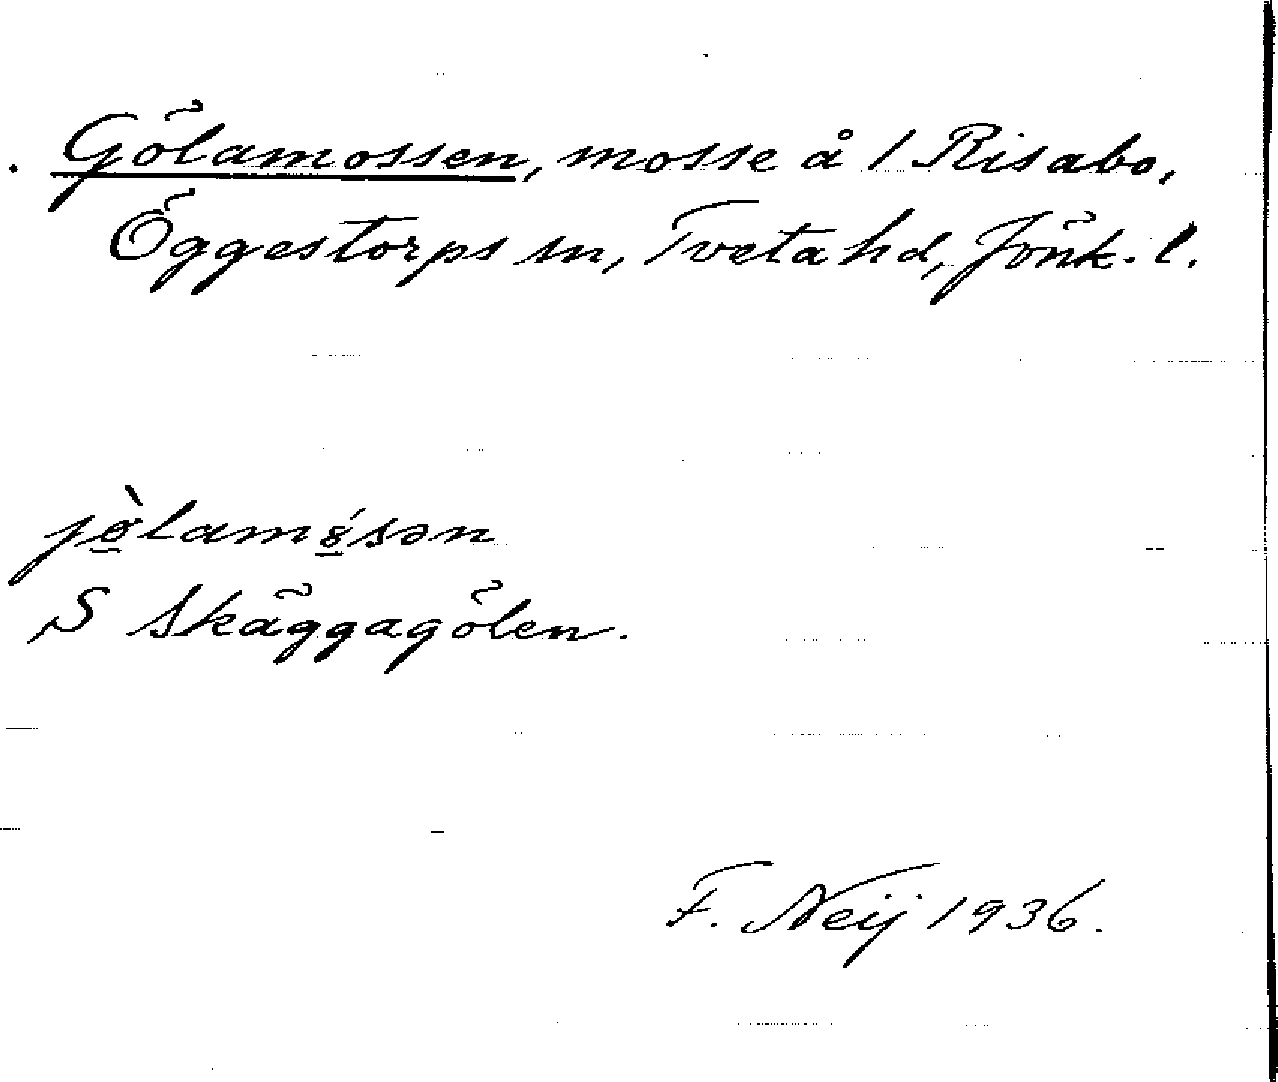 Gölamossen, mosse å 1 Risabo,
Öggestorps sn, Tveta hd, Jönk. l.
jø̠̀lamǫ́sən
S Skäggagölen.
F. Neij 1936.